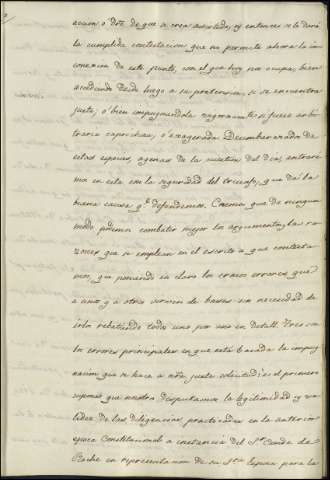 acción ó dro. de que se crea asistido, y entonces se le dará
la cumplida contestacion que no permite ahora la in-
conexion de este punto, con el que hoy nos ocupa, bien
accediendo desde luego a su pretension, si se encuentra
justa, ó bien impugnandola vigorosamente si fuere arbi-
traria caprichosa, ó exagerada. Desembarazados de
estas especies, agenas de la cuestion del dia, entrare-
mos en esta con la seguridad del triunfo, que dá la
buena causa qe. defendemos. Creemos que de ningun
modo podemos combatir mejor los argumentos, y las ra-
zones que se emplean en el escrito a que contesta-
mos, que poniendo en claro los crasos errores que
a unos y a otros sirven de bases sin necesidad de
irlos rebatiendo todos uno por uno en detall. Tres son
los errores principales en que está basada la impug-
nacion que se hace a nuestra justa solicitud: es el primero
suponer que nosotros disputamos la legitimidad y va-
lidez de las diligencias practicadas en la anterior
epoca Constitucional a instancia del Sr. Conde de
en representacion de su Sra. Esposa para la